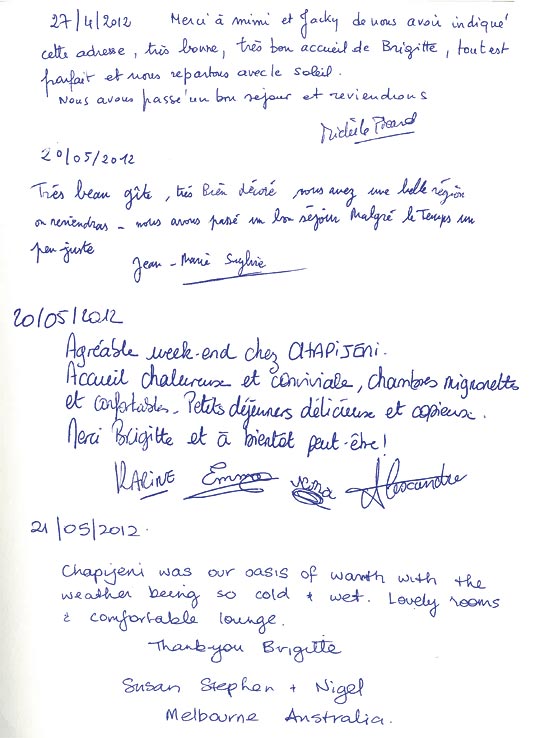 27/4/2012 Merci à mimi et Jacky de nous avoir indiqué
cette adresse, très bonne, très bon accueil de Brigitte, tout est
parfait et nous repartons avec le soleil.
Nous avons passé un bon séjour et reviendrons
Michèle Picard
20/05/2012
Très beau gîte, très bien décoré vous avez une belle région
on reviendras - nous avons passé un bon séjour Malgré le Temps un
peu juste
Jean-Marie Sylvie
20/05/2012
Agréable week-end chez CHAPIJENI.
Accueil chaleureux et conviviale, chambres mignonettes
et confortables. Petits déjeuners délicieux et copieux.
Merci Brigitte et à bientôt peut-être!
KARINE Emma Alexandre
21/05/2012.
Chapijeni was our oasis of warmth with the
weather being so cold + wet. Lovely rooms
& comfortable lounge.
Thankyou Brigitte
Susan Stephen + Nigel
Melbourne Australia.